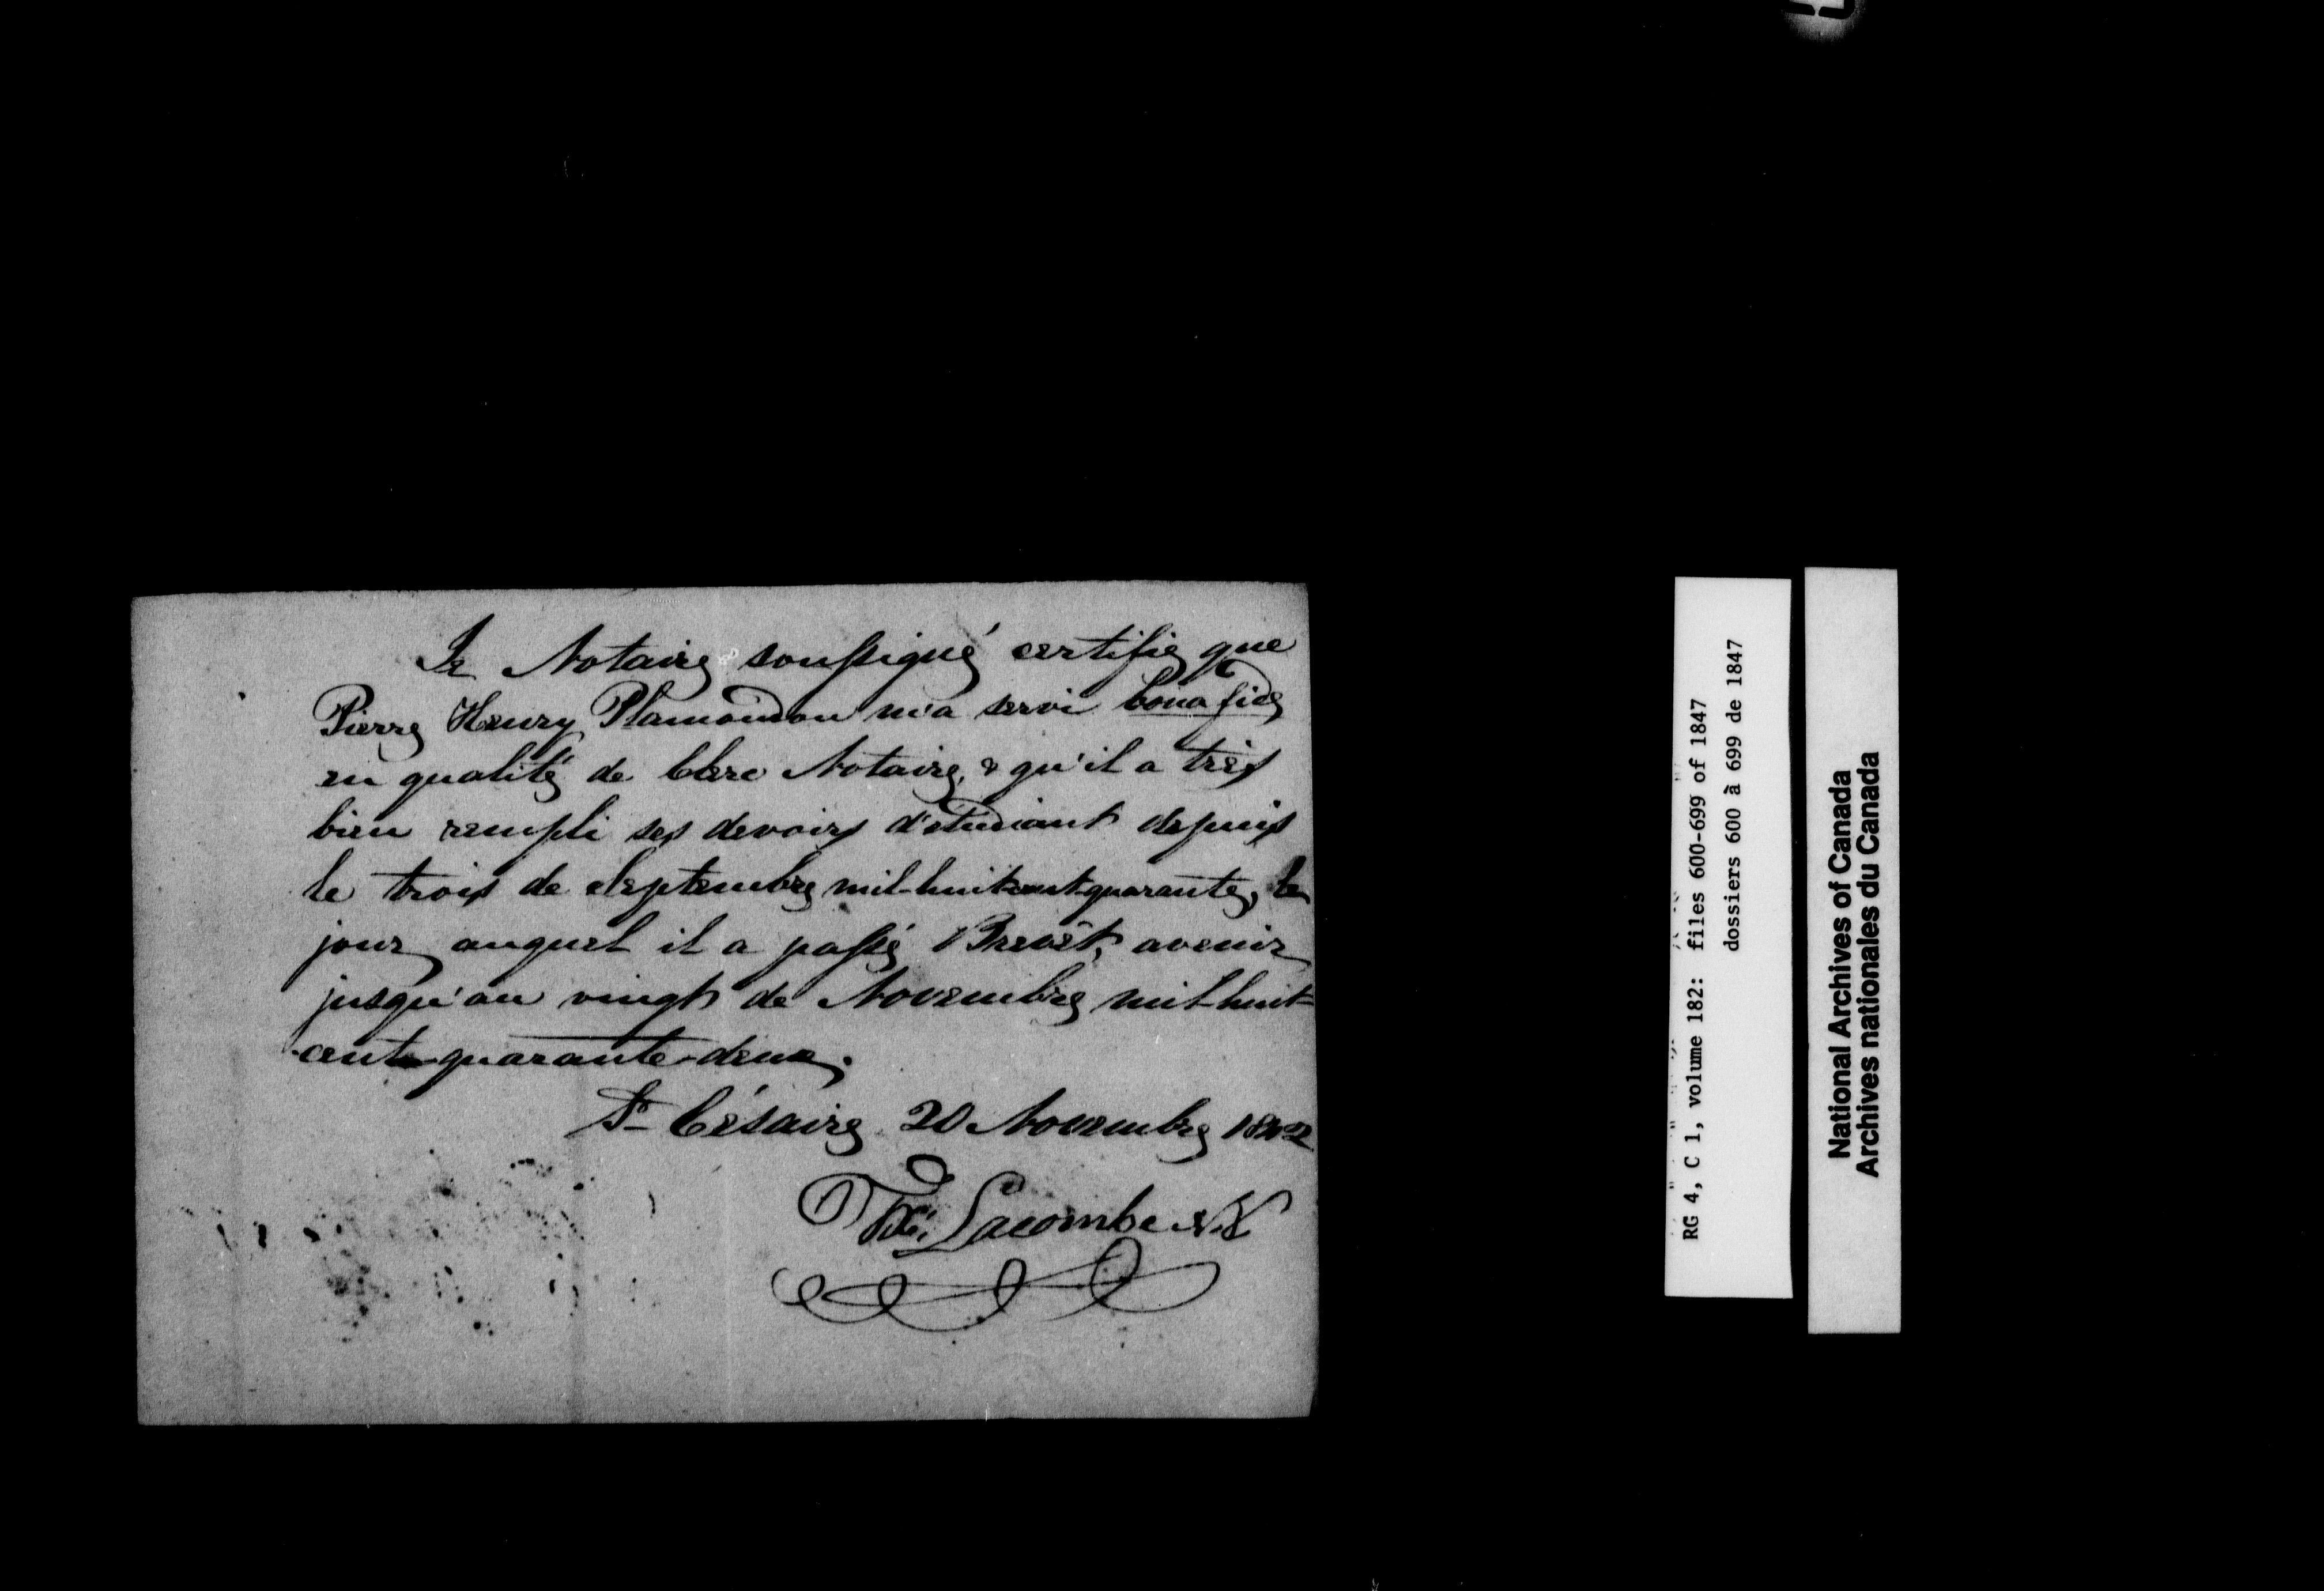 Je Notaire soussigné certifie que
Pierre Henry Plamondon m'a servi bona fide
en qualité de Clerc Notaire, & qu'il a très
bien rempli ses devoirs d'étudiant depuis
le trois de Septembre mil-huit-cent-quarante, le
jour auquel il a passé Brevêt, avenir
jusqu'au vingt de Novembre mil-huit-
cent-quarante-deux.
St Césaire 20 Novembre 1842
Lacombe N.P.
RG 4, C 1, volume 182: files 600-699 of 1847
dossiers 600 à 699 de 1847
National Archives of Canada
Archives nationales du Canada